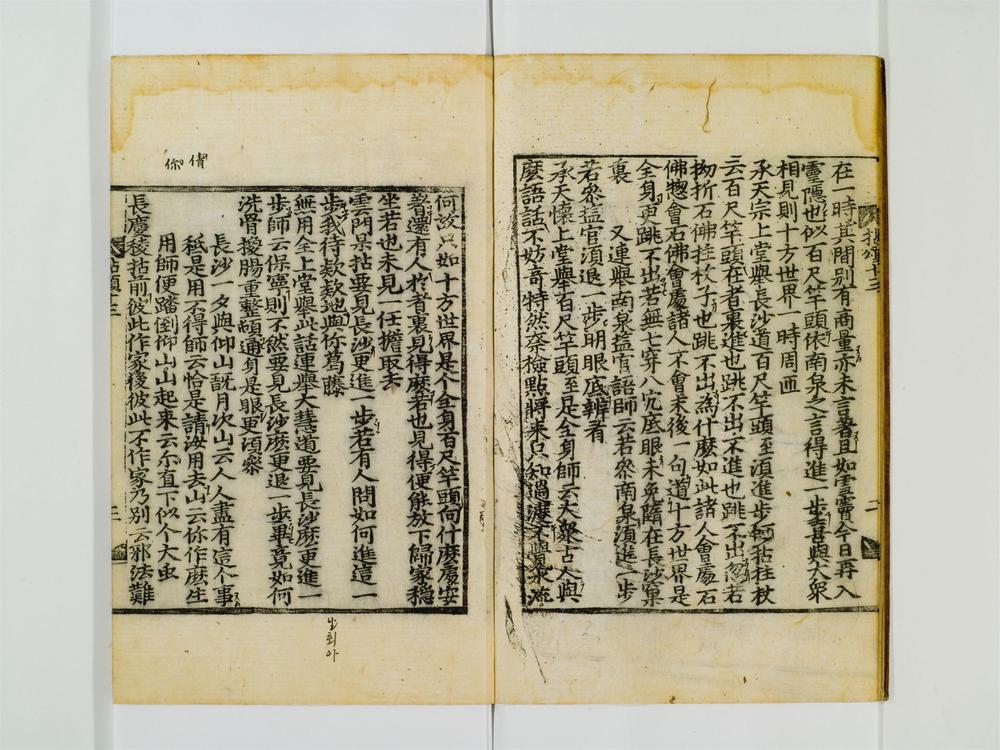 在一時其間別有商量亦未言著且如雲竇今日再入
靈隱也似百尺竿頭依南泉之言得進一步喜與大衆
相見則十方世界一時周匝
承天宗上堂舉長沙道百尺竿頭至須進步師拈拄杖
云百尺竿頭在者裏進也跳不出不進也跳不出忽若
拗折石佛拄杖子也跳不出爲什麽如此諸人會處石
佛惣會石佛會處諸人不會末後一句道十方世界是
全身更跳不出若無七穿八穴底眼未免隨在長沙窠
裏 又連舉南泉插官語師云若叅南泉須進一步
若叅插官須退一步明眼底辨看
承天懷上堂舉百尺竿頭至是全身師云大衆古人與
麽語話不妨奇特然柰撿點將來只知過
何故只如十方世界是个全身百尺竿頭向什麽處安
著還有人於者裏見得麽若也見得便能放下歸家穩
坐若也未見一任擔取去
雲門杲拈要見長沙更進一步若有人問如何進這一
步我待欵欵地與你葛藤
無用全上堂舉此話連舉大慧道要見長沙麽更進一
步師云保寧則不然要見長沙麽更退一步畢竟如何
洗骨援腸重整頓通身是眼更須叅
長沙一夕與仰山翫月次山云人人盡有這个事
秪是用不得師云恰是請汝用去山云你作麽生
用師便踏倒仰山山起來云尔直下似个大虫
長慶稜拈前彼此作家後彼此不作家乃別云邪法難
拈頌十三
二
倩
你